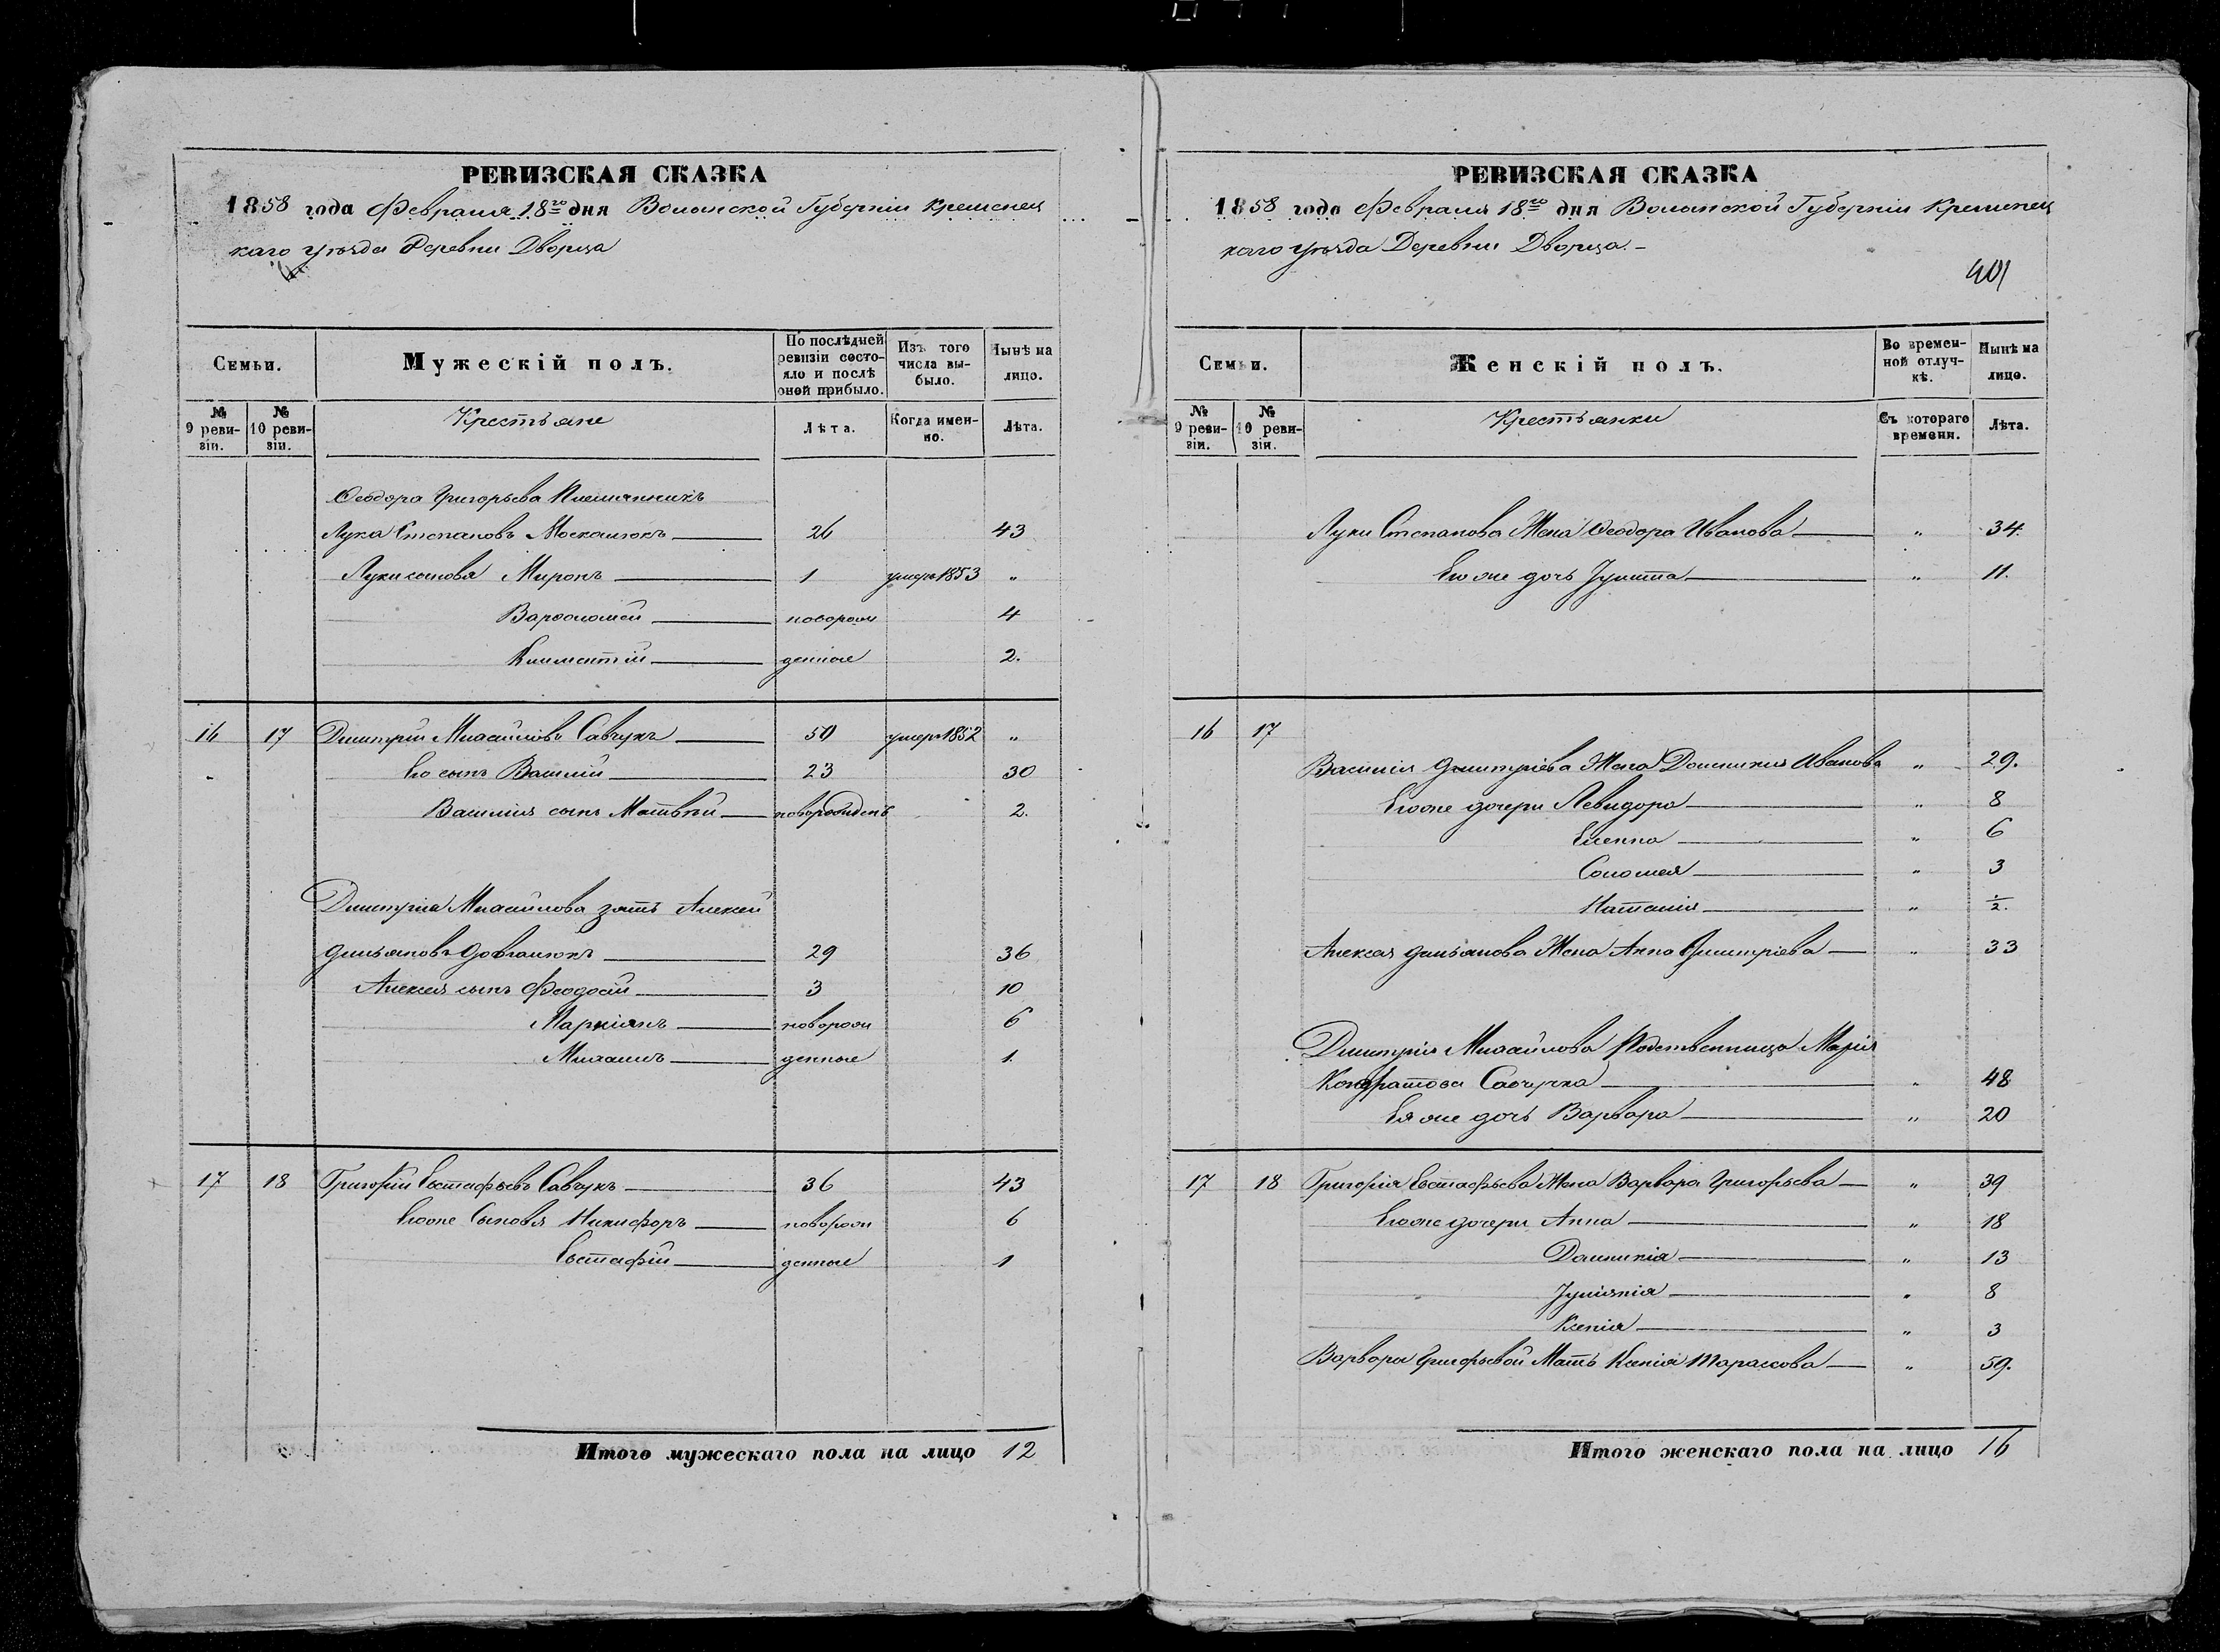 РЕВИЗСКАЯ СКАЗКА
1858 года Февраля 18го дня Волынской Губерніи Кременец
каго уѣзда Деревни Дворца
Семьи.
Мужескій полъ.
По послѣдней ревизіи состояло и послѣ оной прибыло.
Изъ того числа выбыло.
Нынѣ на лицо.
№ 9 ревизіи.
№ 10 ревизіи.
Крестьяне
Лѣта.
Когда именно.
Лѣта.
Феодора Григорьева Племянникъ
Лука Степановъ Москалюкъ 26 43
Луки сыновя Миронъ 1 умеръ 1853 „
Варфоломей новорож 4
Климентій денные 2.
16 17 Дмитрій Михайловъ Савчукъ 50 умеръ 1852 „
Его сынъ Василій 23 30
Василія сынъ Матвѣй новорожденъ 2.
Дмитрія Михайлова зять Алексей
Дмьяновъ Довгалюкъ 29 36
Алексея сынъ Феодосій 3 10
Маркіянъ новорож 6
Михаилъ денные 1.
17 18 Григорій Евстафьевъ Савчукъ 36 43
Егоже Сыновя Никифоръ новорож 6
Евстафій денные 1
Итого мужескаго пола на лицо 12
РЕВИЗСКАЯ СКАЗКА
1858 года Февраля 18го дня Волынской Губерніи Кременец
каго уѣзда Деревни Дворца.
401
Семьи.
Женскій полъ.
Во временной отлучкѣ.
Нынѣ на лицо.
№ 9 ревизіи.
№ 10 ревизіи.
Крестьянки
Съ котораго времени.
Лѣта.
Луки Степанова Жена Феодора Иванова „ 34.
Его же дочь Улитта „ 11.
16 17
Василія Дмитріева Жена Домникия Иванова „ 29.
Егоже дочери Левидора „ 8
Еленна „ 6
Соломея „ 3
Наталія „ 1/2.
Алексея Дмьянова Жена Анна Дмитріева „ 33
Дмитрія Михайлова Родственница Марія
Кондратова Савчукова „ 48
Ея же дочь Варвара „ 20
17 18 Григорія Евстафьева Жена Варвара Григорьева „ 39
Егоже дочери Анна „ 18
Домникія „ 13
Іуліянія „ 8
Ксенія „ 3
Варвары Григорьевой Мать Ксенія Тарассова „ 59.
Итого женскаго пола на лицо 16